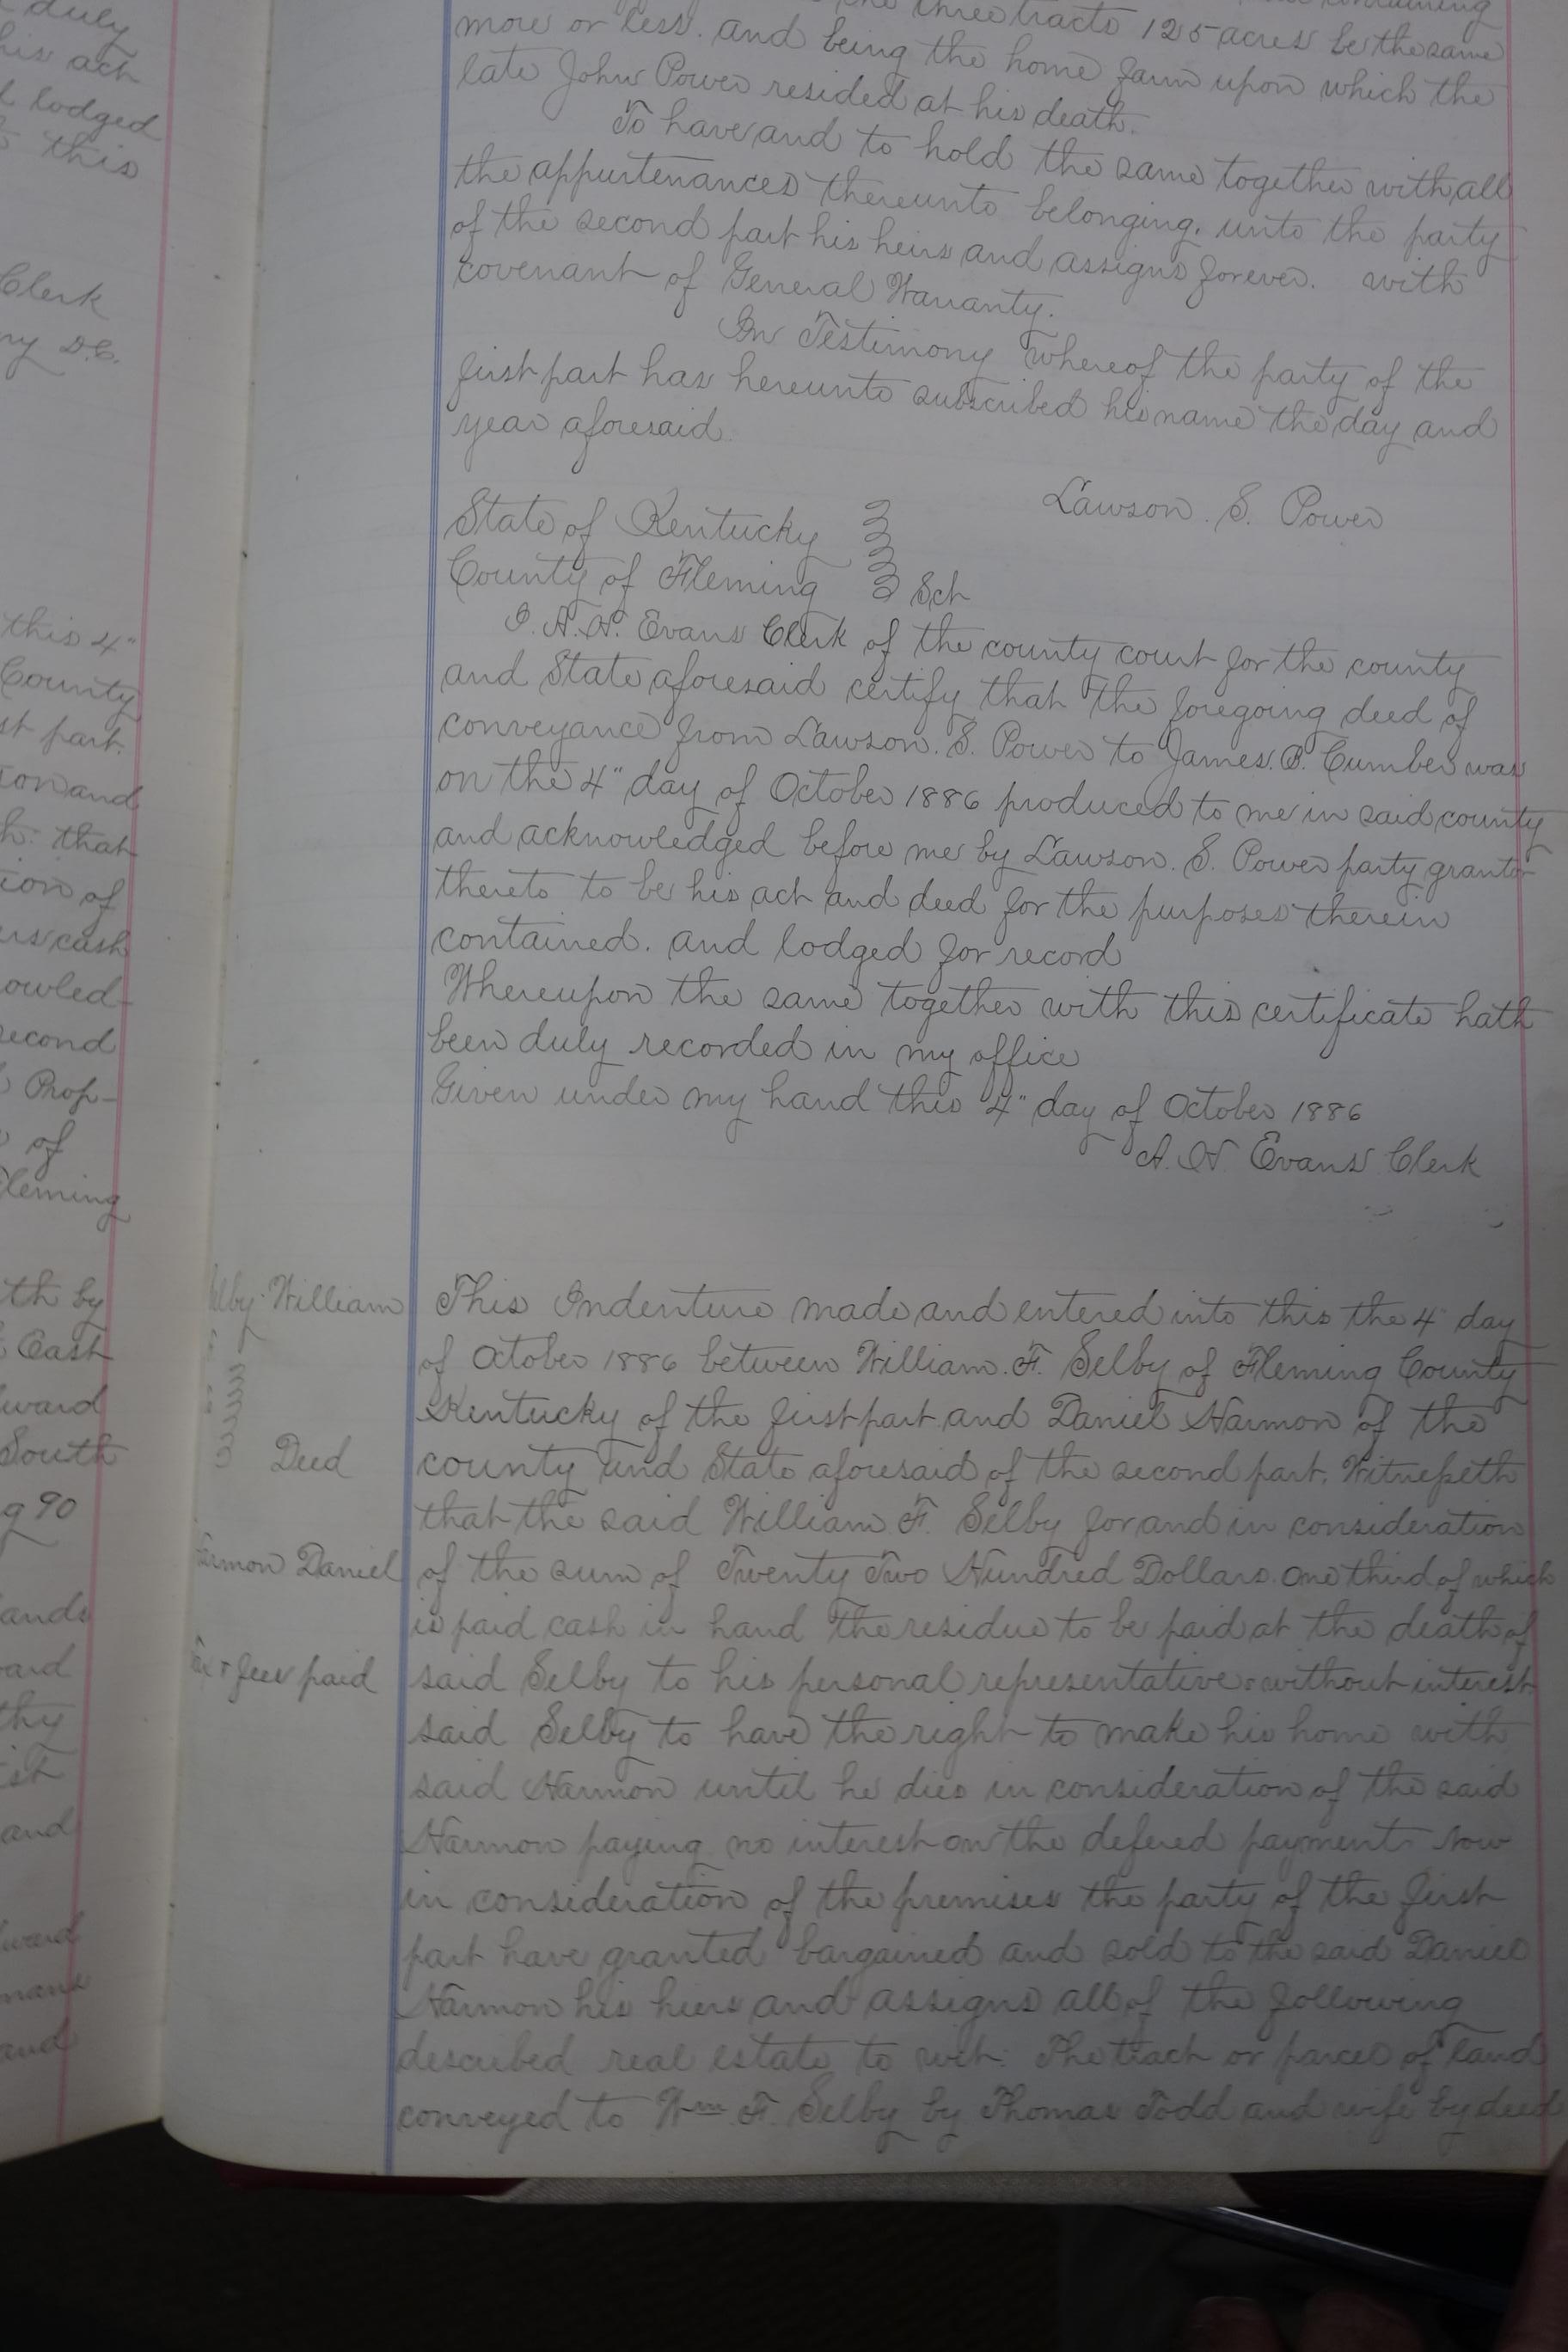 duly
his act
lodged
this
Clerk
ny D.C.
this 4"
County
st part.
ion and
h: that
ion of
ers cash
owled-
second
Prop-
of
Fleming
th by
East
ward
South
g 90
ands
ard
thy
ist
and
ward
mans
and
the three tracts 125 acres be the same
more or less. and being the home farm upon which the
late John Power resided at his death.
To have and to hold the same together with all
the appurtenances thereunto belonging. unto the party
of the second part his heirs and assigns forever. with
covenant of General Warranty.
In Testimony whereof the party of the
first part has hereunto subscribed his name the day and
year aforesaid.
Lawson. S. Power
State of Kentucky
County of Fleming Sct
I. A. H. Evans Clerk of the county court for the county
and State aforesaid certify that the foregoing deed of
conveyance from Lawson. S. Power to James. B. Cumber was
on the 4" day of October 1886 produced to me in said county
and acknowledged before me by Lawson. S. Power party grantor
thereto to be his act and deed for the purposes therein
contained. and lodged for record
Whereupon the same together with this certificate hath
been duly recorded in my office
Given under my hand this 4" day of October 1886
A. H. Evans Clerk
Selby William
Deed
Harmon Daniel
Tax & fees paid
This Indenture made and entered into this the 4" day
of October 1886 between William. F. Selby of Fleming County
Kentucky of the first part and Daniel Harmon of the
county and State aforesaid of the second part. Witnesseth
that the said William F. Selby for and in consideration
of the sum of Twenty Two Hundred Dollars. one third of which
is paid cash in hand the residue to be paid at the death of
said Selby to his personal representative. without interest
said Selby to have the right to make his home with
said Harmon until he dies in consideration of the said
Harmon paying no interest on the defered payment Now
in consideration of the premises the party of the first
part have granted bargained and sold to the said Daniel
Harmon his hiers and assigns all of the following
described real estate to wit: The tract or parcel of land
conveyed to Wm F. Selby by Thomas Todd and wife by deed